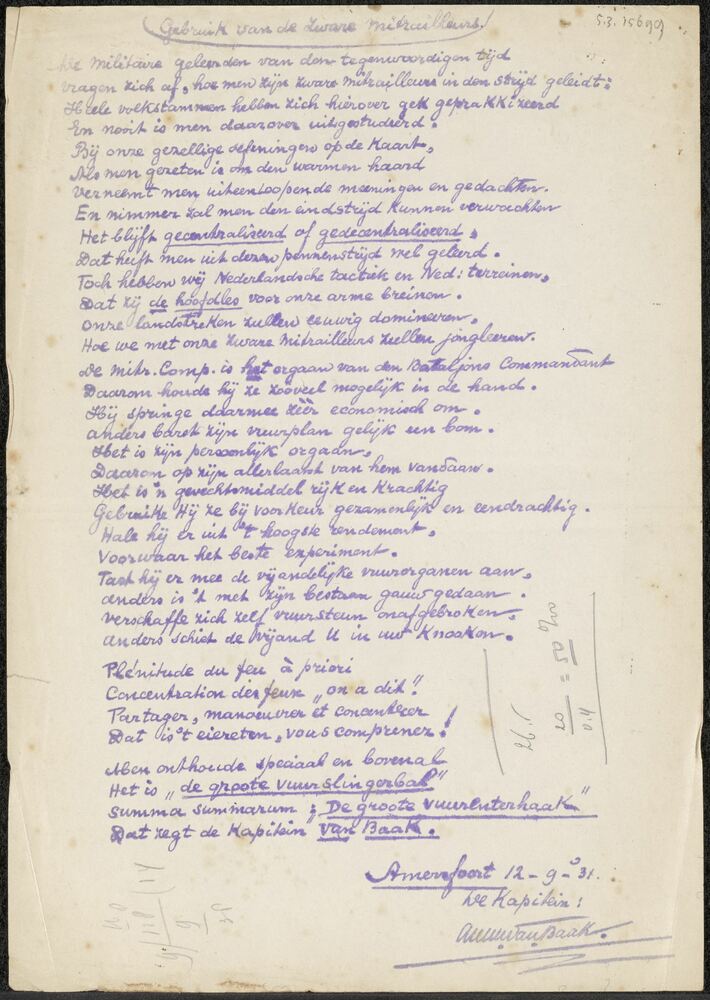 Gebruik van de zware mitrailleurs!
De militaire geleerden van den tegenwoordigen tijd
vragen zich af, hoe men zijn zware mitrailleurs in den strijd geleidt:
Heele volkstammen hebben zich hierover gek geprakkizeerd
En nooit is men daarover uitgestudeerd.
Bij onze gezellige oefeningen op de kaart,
Als men gezeten is om den warmen haard
verneemt men uiteenloopende meeningen en gedachten.
En nimmer zal men den eindstrijd kunnen verwachten
Het blijft gecentraliseerd of gedecentraliseerd,
Dat heeft men uit dezen pennenstrijd wel geleerd.
Toch hebben wij Nederlandsche tactiek en Ned: terreinen,
Dat zij de hoofdles voor onze arme breinen.
Onze landstreken zullen eeuwig domineren,
Hoe we met onze zware mitrailleurs zullen jongleeren.
De mitr. Comp. is het orgaan van den Bataljons Commandant
Daarom houde hij ze zooveel mogelijk in de hand.
Hij springe daarmee zéér economisch om.
anders barst zijn vuurplan gelijk een bom.
Het is zijn persoonlijk orgaan,
Daarom op zijn allerlaatst van hem vandaan.
Het is 'n gevechtsmiddel rijk en krachtig
Gebruike Hij ze bij voorkeur gezamenlijk en eendrachtig.
Hale hij er uit 't hoogste rendement,
Voorwaar het beste experiment.
Tast hij er mee de vijandelijke vuurorganen aan,
anders is 't met zijn bestaan gauw gedaan.
verschaffe zich zelf vuursteun onafgebroken,
anders schiet de vijand U in uw knooken.
Plénitude du feu à priori
Concentration des feux „on a dit".
Partager, manoeuvrer et concentrer
Dat is 't eiereten, vous comprenez!
Men onthoude speciaal en bovenal
Het is „de groote vuurslingerbal"
Summa summarum: „De groote vuurenterhaak"
Dat zegt de Kapitein van Baak.
Amersfoort 12-9-'31.
De Kapitein:
van Baak.
26.5
20 = 50 ‰
0.4